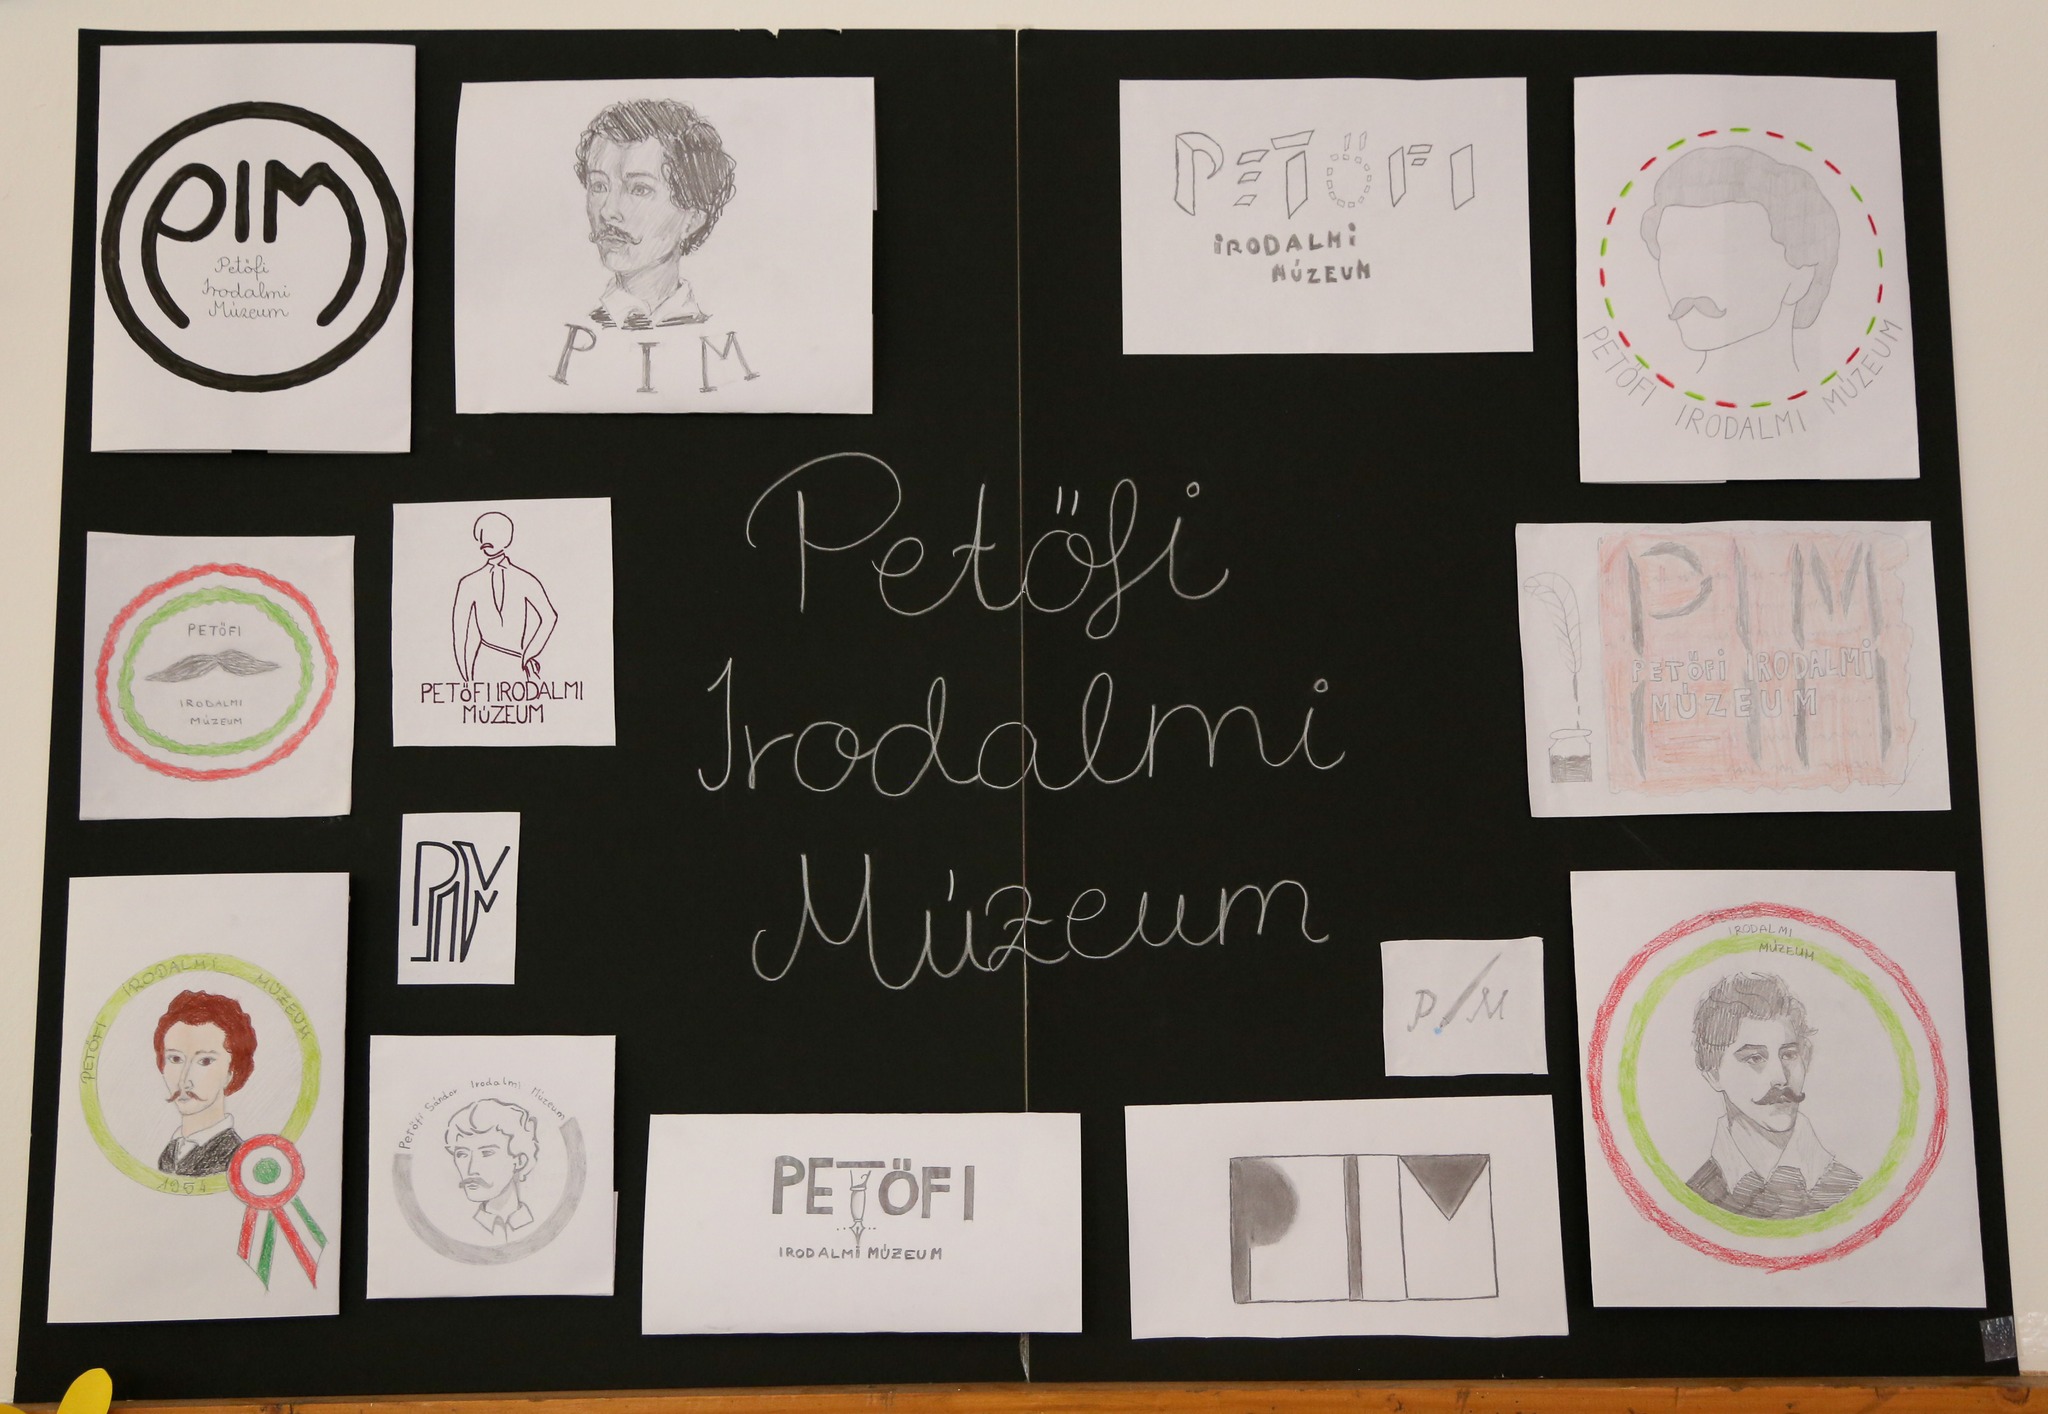 PIM
Petőfi
Irodalmi
Múzeum
PIM
PETŐFI
IRODALMI
MÚZEUM
PETŐFI IRODALMI MÚZEUM
Petőfi
Irodalmi
Múzeum
PETŐFI
IRODALMI
MÚZEUM
PETŐFI IRODALMI
MÚZEUM
PIM
PETŐFI IRODALMI
MÚZEUM
PIM
PETŐFI IRODALMI MÚZEUM
1954
Petőfi Sándor Irodalmi Múzeum
PETŐFI
IRODALMI MÚZEUM
PIM
PIM
IRODALMI
MÚZEUM